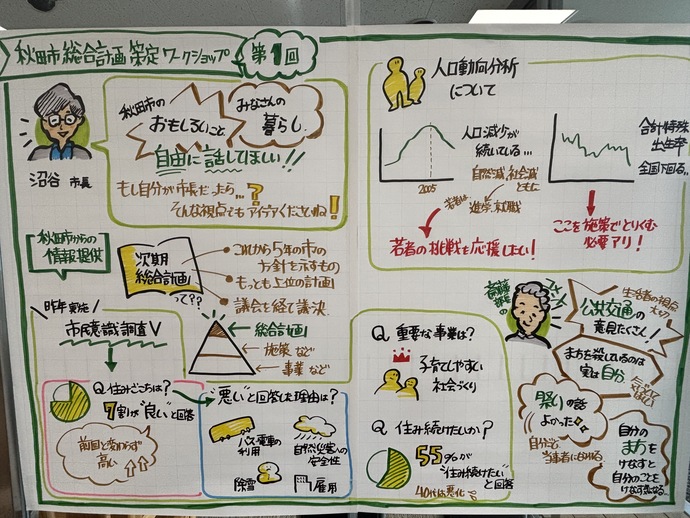 秋田市総合計画策定ワークショップ
第1回
沼谷 市長
秋田市の
おもしろいこと
みなさんの
暮らし
自由に話してほしい!!
もし自分が市長だったら…?
そんな視点でもアイデアくださいね!
秋田市からの
情報提供
次期
総合計画
って??
これから5年の市の
方針を示すもの
もっとも上位の計画
議会を経て議決
総合計画
施策 など
事業 など
昨年実施
市民意識調査
Q 住みごこちは?
7割が"良い"と回答
前回と変わらず
高い
"悪い"と回答した理由は?
バス・電車の
利用
自然災害への
安全性
除雪
雇用
人口動向分析
について
人口減少が
続いている…
自然減、社会減
ともに
2005
若者は
進学、就職
若者の挑戦を応援したい!
合計特殊
出生率
全国下回る…
ここを施策でとりくむ
必要アリ!
Q 重要な事業は?
子育てしやすい
社会づくり
Q 住み続けたいか?
55%が
"住み続けたい"と回答
40代は悪化
生活者の視点
大切
公共交通の
意見たくさん!
まちを殺しているのは
実は自分
祭りの話
よかった
自分ごと
当事者に
自分の
まちを
けなすと
自分のことを